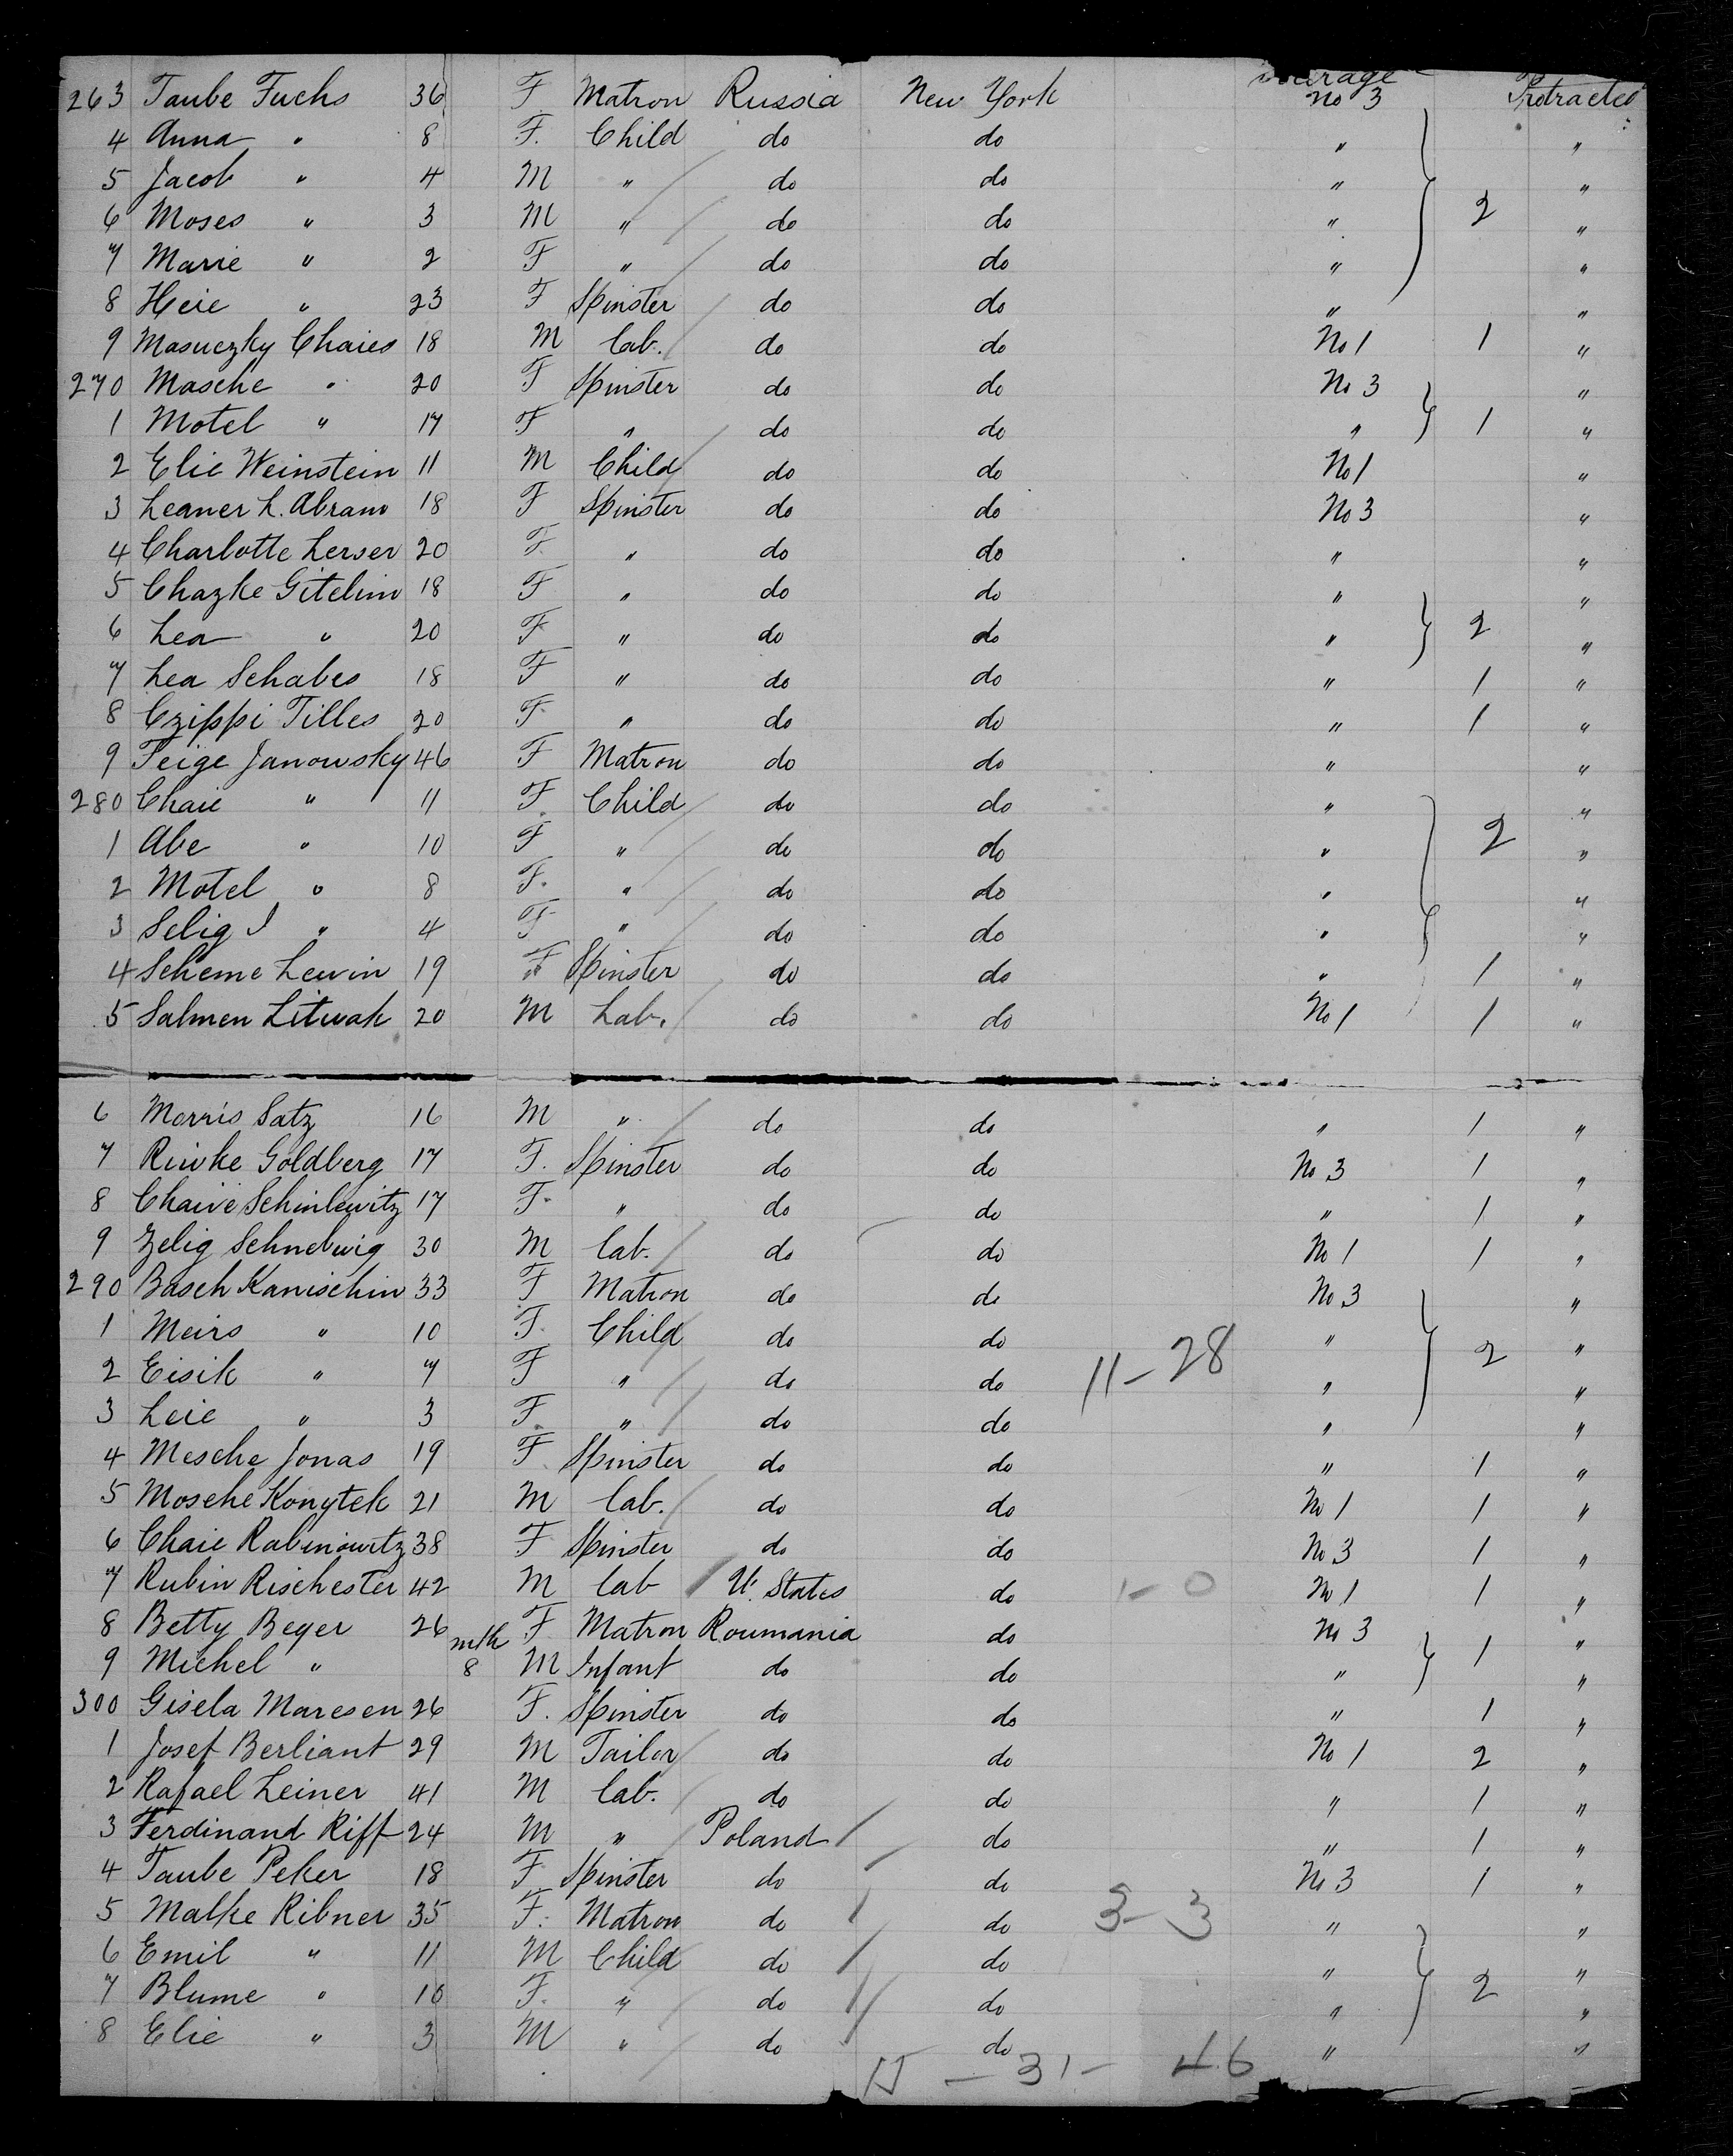 Steerage
263 Taube Fuchs 36 F Matron Russia New York No 3 Protracted
4 Anna " 8 F. Child do do " "
5 Jacob " 4 M " do do " "
6 Moses " 3 M " do do " 2 "
7 Marie " 2 F " do do " "
8 Heie " 23 F Spinster do do " "
9 Masuczky Chaies 18 M Lab. do do No 1 1 "
270 Masche " 20 F Spinster do do No 3 "
1 Motel " 17 F " do do " 1 "
2 Elie Weinstein 11 M Child do do No 1 "
3 Leaner L. Abram 18 F Spinster do do No 3 "
4 Charlotte Lerser 20 F. " do do " "
5 Chazke Gitelim 18 F " do do " "
6 Lea " 20 F " do do " 2 "
7 Lea Schabes 18 F " do do " 1 "
8 Czippi Tilles 20 F " do do " 1 "
9 Feige Janowsky 46 F Matron do do " "
280 Chaie " 11 F. Child do do " "
1 Abe " 10 F " do do " 2 "
2 Motel " 8 F. " do do " "
3 Selig I " 4 F " do do " "
4 Scheme Lewin 19 F Spinster do do " 1 "
5 Salmen Litwak 20 M Lab. do do No 1 1 "
6 Morris Satz 16 M " do do " 1 "
7 Riwke Goldberg 17 F. Spinster do do No 3 1 "
8 Chaive Schinlewitz 17 F. " do do " 1 "
9 Zelig Schnelwig 30 M Lab. do do No 1 1 "
290 Basch Kanischin 33 F Matron do do No 3 "
1 Meirs " 10 F. Child do do " "
2 Eisik " 7 F " do do 11-28 " 2 "
3 Leie " 3 F. " do do " "
4 Mesche Jonas 19 F Spinster do do " 1 "
5 Mosche Konytek 21 M Lab. do do No 1 1 "
6 Chaie Rabinowitz 38 F Spinster do do No 3 1 "
7 Rubin Rischester 42 M Lab U. States do 1-0 No 1 1 "
8 Betty Beger 26 F Matron Roumania do No 3 "
9 Michel " mth 8 M Infant do do " 1 "
300 Gisela Maresen 26 F. Spinster do do " 1 "
1 Josef Berliant 29 M Tailor do do No 1 2 "
2 Rafael Leiner 41 M Lab. do do " 1 "
3 Ferdinand Riff 24 M " Poland do " 1 "
4 Taube Peker 18 F Spinster do do No 3 1 "
5 Malke Ribner 35 F. Matron do do 3-3 " "
6 Emil " 11 M Child do do " "
7 Blume " 10 F. " do do " 2 "
8 Elie " 3 M " do do " "
15 - 31 - 46